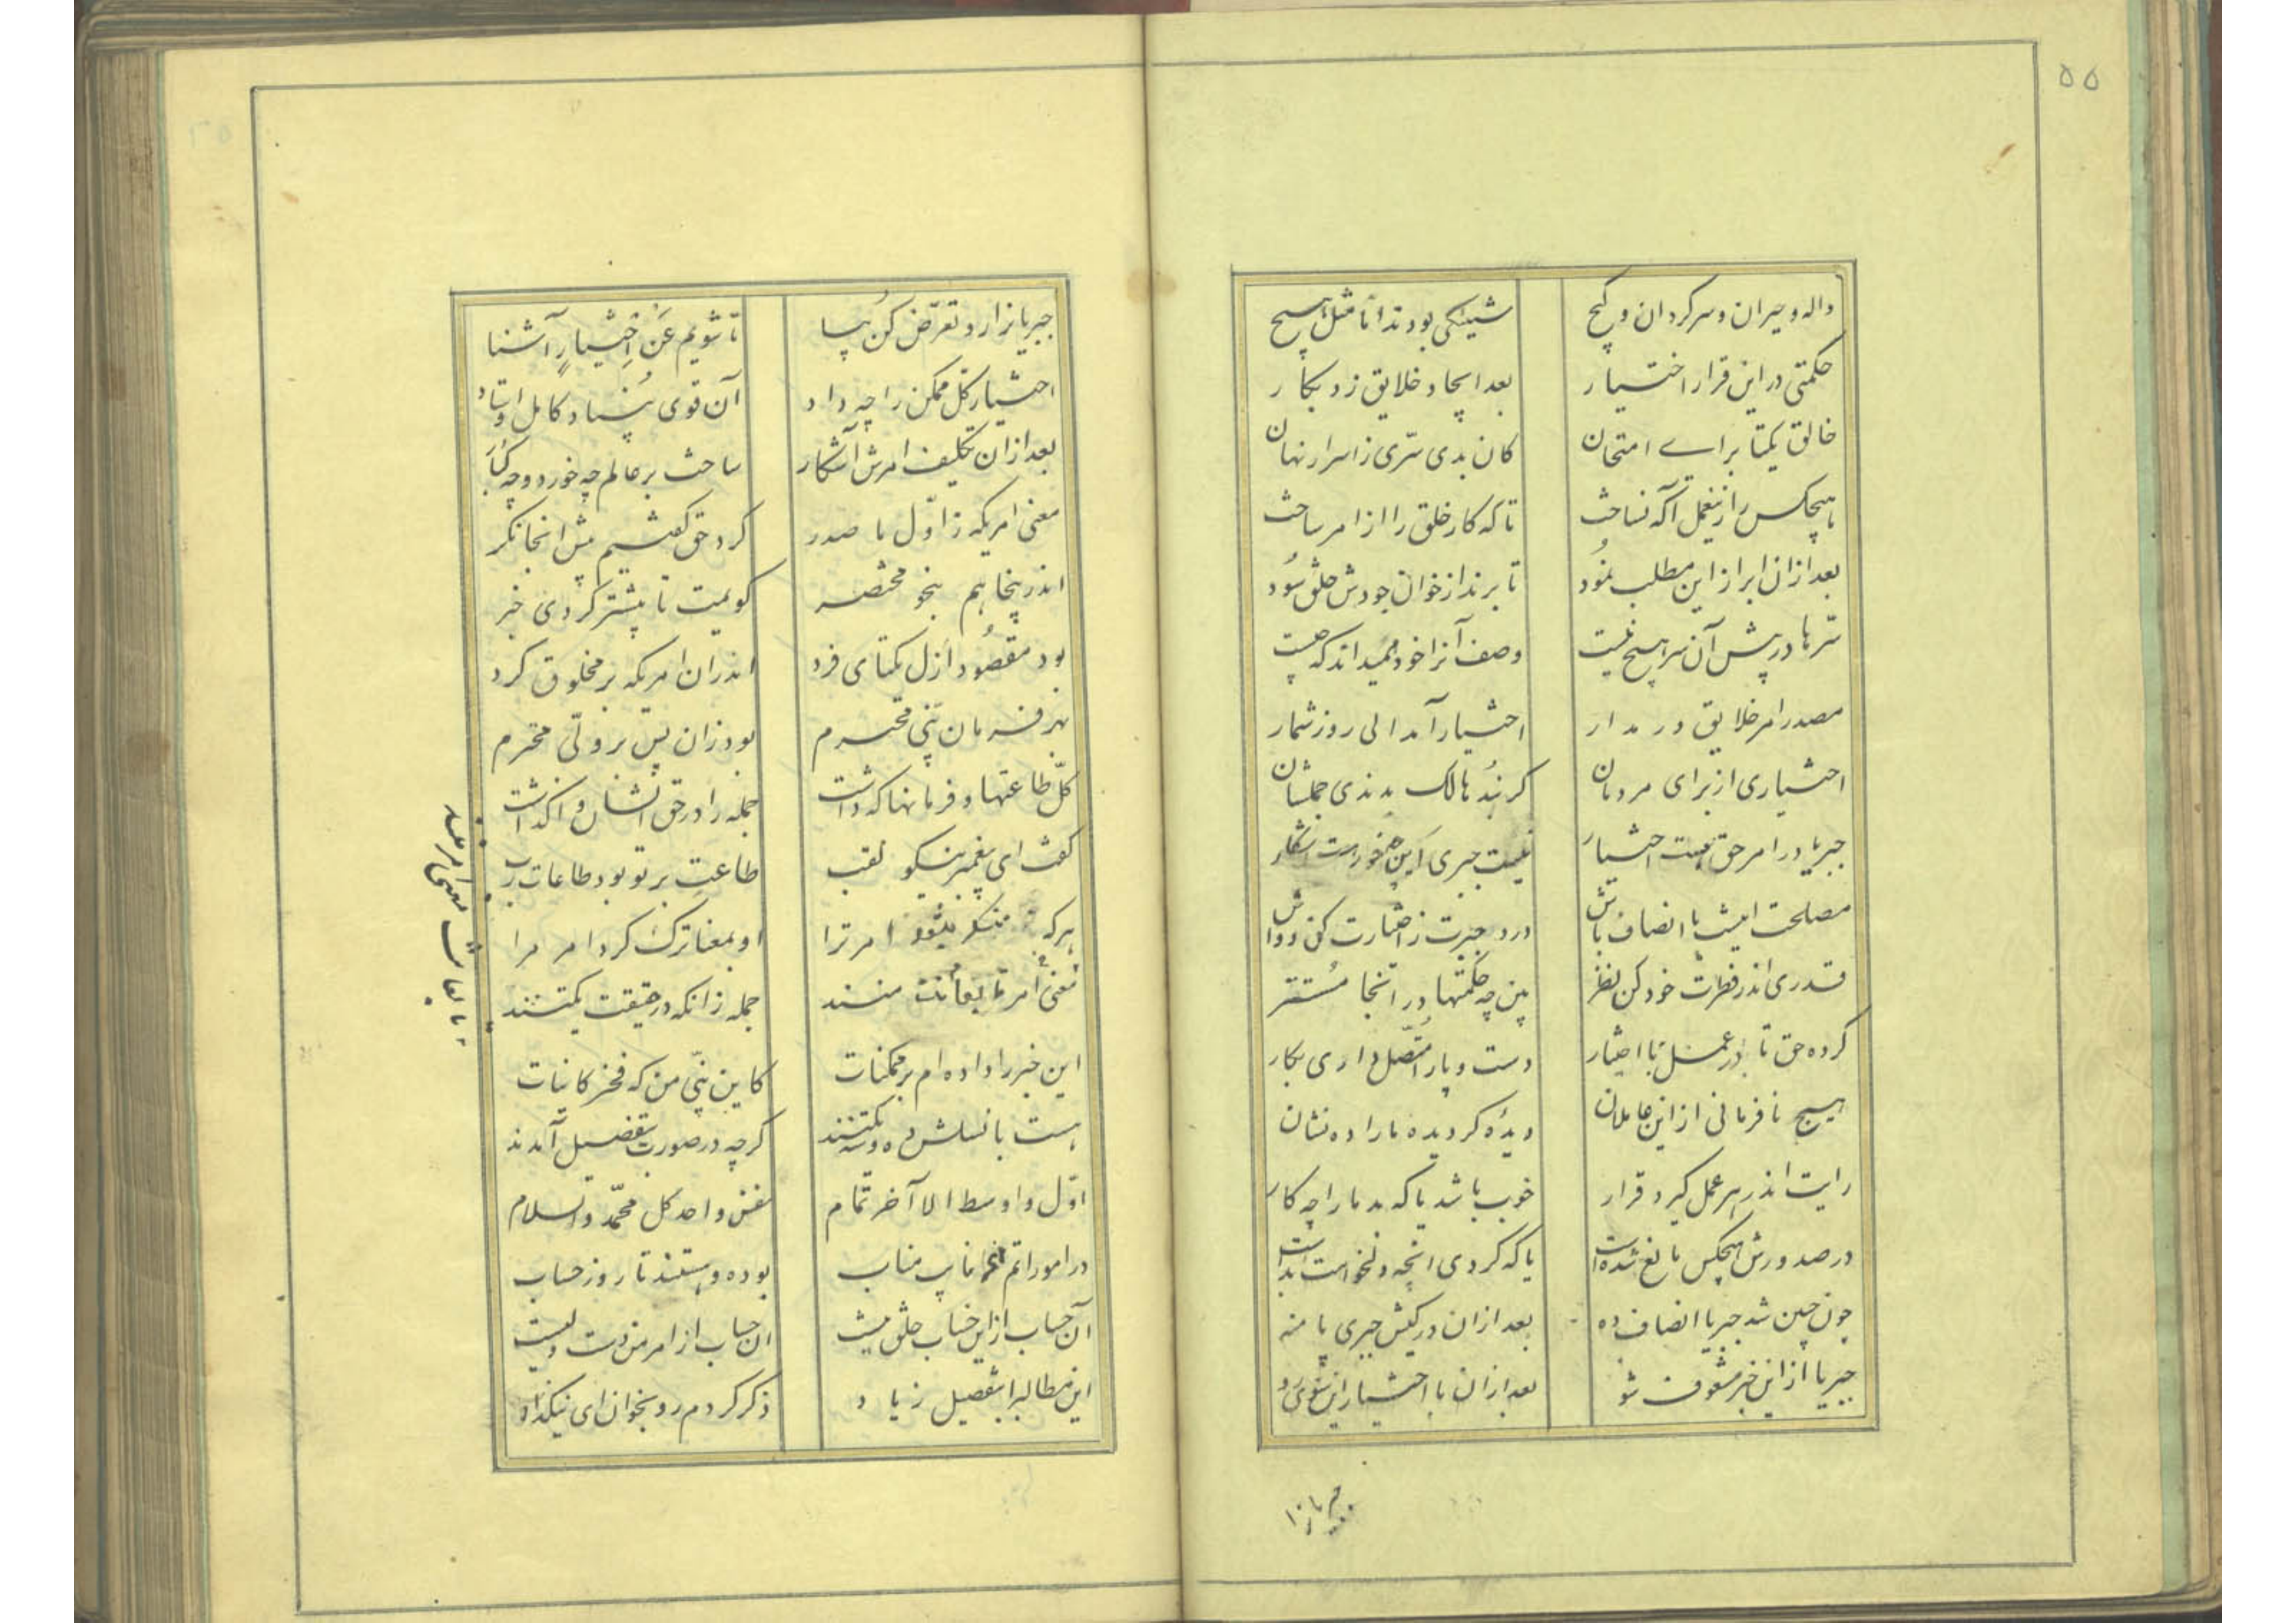 ۵۵
واله و حیران و سرکردان و کیج
شیئکی بودند اما مثل هیچ
حکمتی در این قرار اختیار
بعد ایجاد خلایق زد بکار
خالق یکتا برای امتحان
کان بدی سّری ز اسرار نهان
تا که کار خلق را از امر ساخت
بعد ازان ابراز این مطلب نمُود
تا برند از خوان جودش خلق سُود
سّرها در پیش آن سر هیچ نیست
وصف آنرا خود همیداند که چیست
مصدر امر خلایق در مدار
اختیار آمد الی روز شمار
اختیاری از برای مردمان
کر نبُد مالک بدندی جملشان
جبریا در امر حق هست اختیار
نیست جبری این
مصلحت اینست با انصاف باش
درد جبرت ز اختیارت کن دواش
قدری اندر فطرت خود کن نظر
بین چه حکمتها در انجا مُستتر
کرده حق تا در عمل با اختیار
دست و پا را متّصل داری بکار
هیچ نافرمانی از این عاملان
دیدهٔ کردیده ما را ده نشان
رایت اندر هر عمل کیرد قرار
خوب باشد یا که بد ما را چه کار
در صدورش هیچکس مانع شده است
یا که کردی انچه دلخواهت بد است
چون چنین شد جبریا انصاف ده
بعد ازان در کیش جبری پا منه
جبریا از این خبر مشعوف شو
بعد ازان با اختیار این سوی رو
جبریا زا
جبریا زار و تعرّض کن بیا
تا شویم عَن اِختیارٍ آشنا
اختیار کل ممکن را چه داد
آن قوی بُنیاد کامل اوستاد
بعد ازان تکلیف امرش آشکار
ساخت بر عالم چه خورد و چه کُبار
معنی امریکه ز اوّل ما صدر
کرد حق کفتیم پیش انجا نکر
اندر ینجا هم بنحو مختصر
کویمت تا بیشتر کردی خبر
بود مقصُود ازل یکتای فرد
اندران امریکه بر مخلوق کرد
بهر فرمان نبّی محترم
بود زان پس بر ولّی محترم
کلّ طاعتها و فرمانها که داشت
جمله را در حق انشان واکذاشت
کفت ای پیغمبر نیکو لقب
طاعت بر تو بود طاعات رب
هر که منکر میشود امر ترا
او بمعنا ترک کرد امر مرا
معنی امر تابعانت منند
جمله زانکه در حقیقت یکتنند
تابعانت
این خبر را داده ام بر ممکنات
کاین نبّی من که فخر کاینات
هست با نسلش ده و دو یکتنند
کرچه در صورت بتفضیل آمدند
اوّل و اوسط الا آخر تمام
نفس واحد کل محمّد والسلام
در امور اتم نایب مناب
بوده و هستند تا روز حساب
آن حساب از این حساب خلق نیست
ان حساب از امر من دست ولیست
این مطالبرا بتفصیل زیاد
ذکر کردم رو بخوان ای نیکذاد